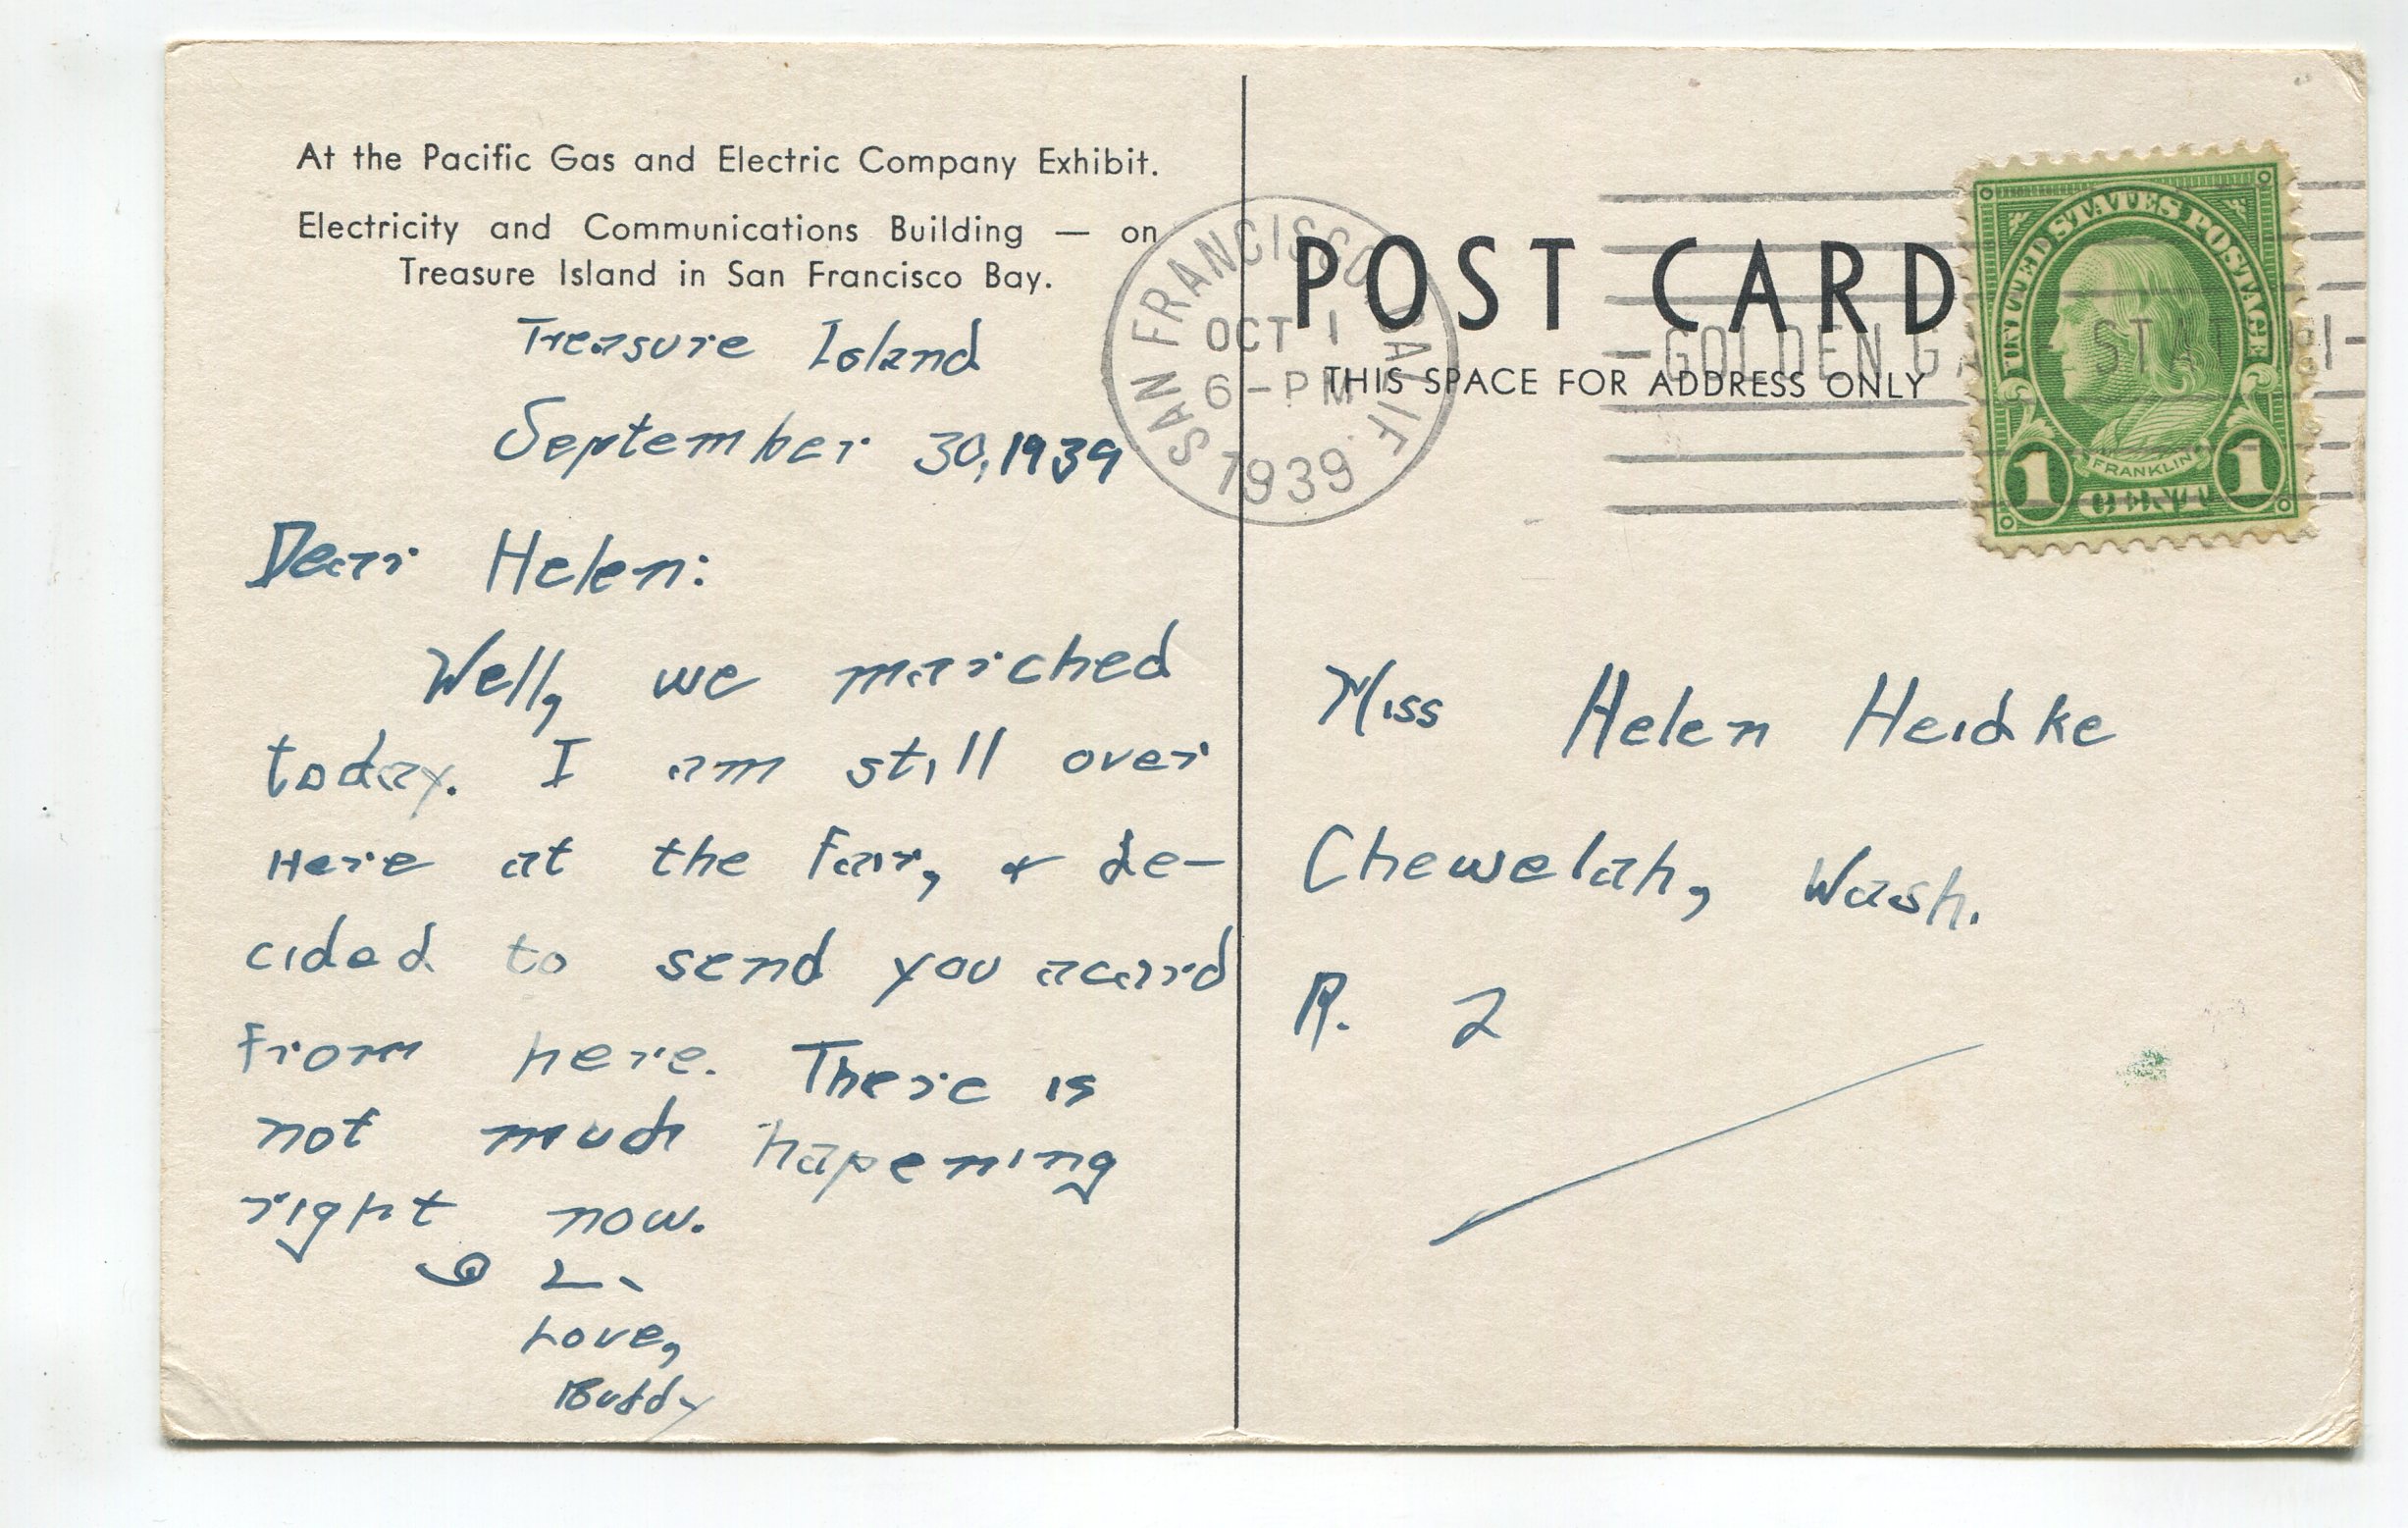 At the Pacific Gas and Electric Company Exhibit.
Electricity and Communications Building — on
Treasure Island in San Francisco Bay.
Treasure Island
September 30, 1939
Dear Helen:
Well, we marched
today. I am still over
Here at the Fair, & de-
cided to send you a card
From here. There is
not much hapening
right now.
Love,
Buddy
SAN FRANCISCO, CALIF.
OCT 1
6-PM
1939
POST CARD
THIS SPACE FOR ADDRESS ONLY
-GOLDEN GA
UNITED STATES POSTAGE
FRANKLIN
1 CENT 1
Miss Helen Heidke
Chewelah, Wash.
R. 2